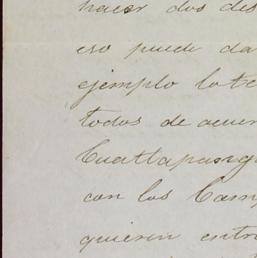 hacer dos des
eso puede da
ejemplo lote
todos de acuer
Cuatlapanga
con los Camp
quieren entr